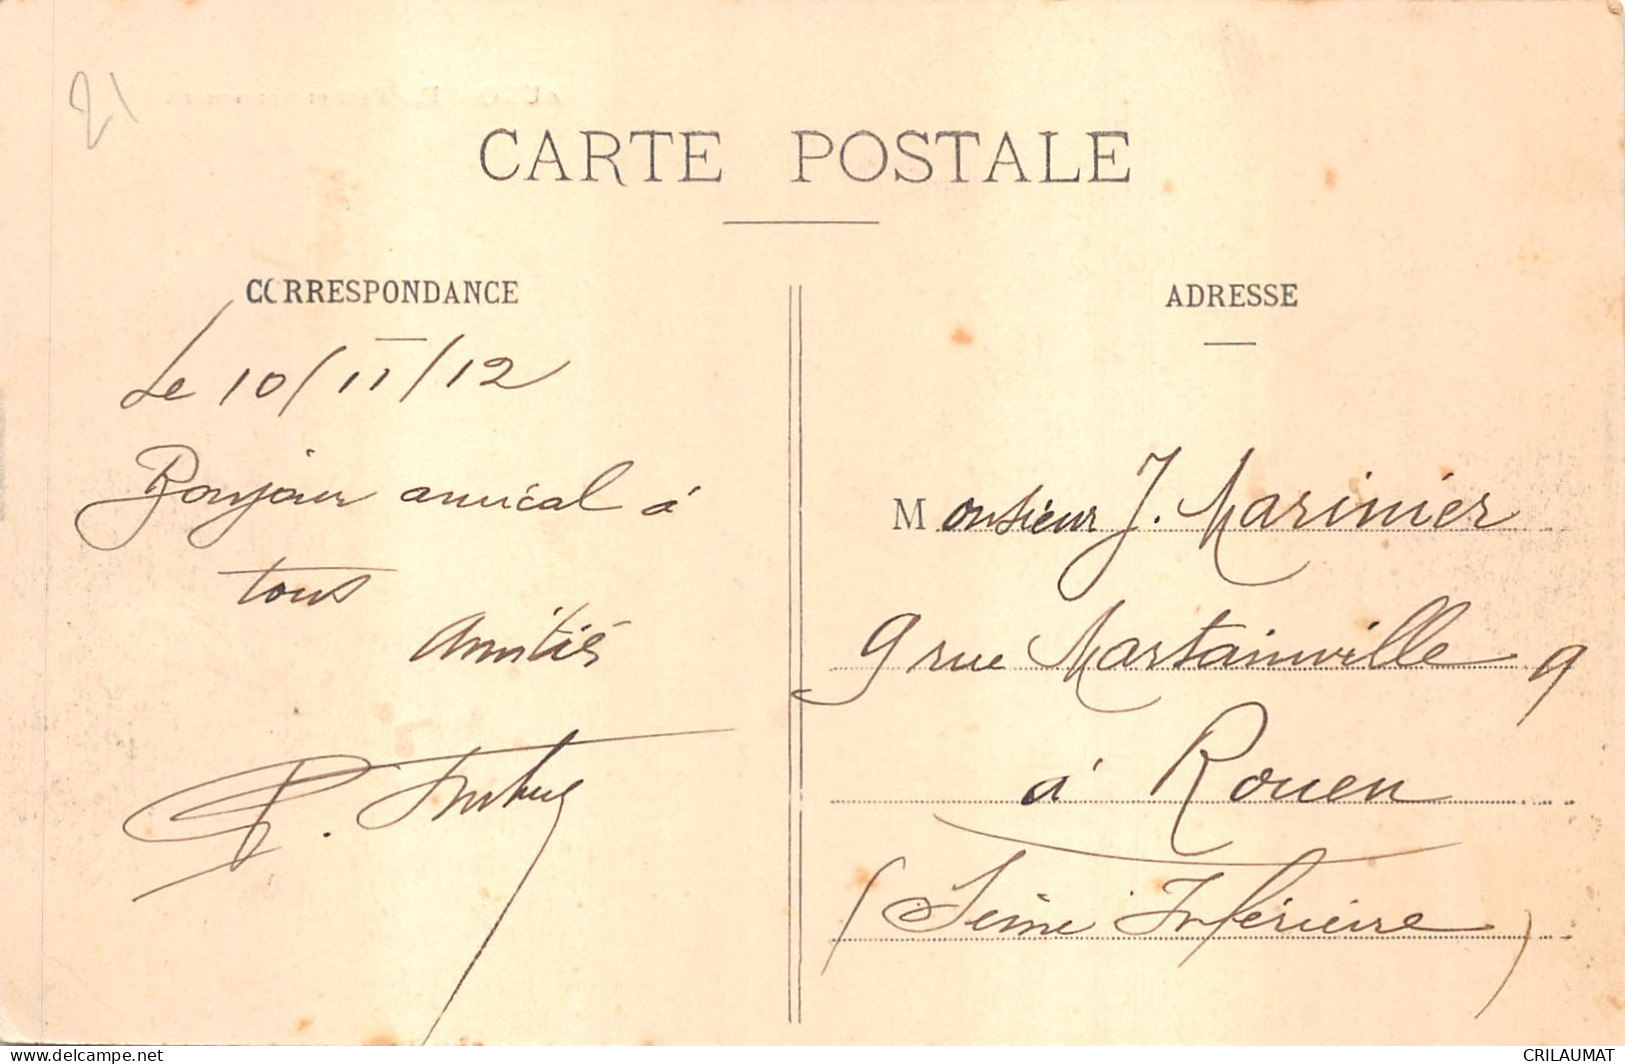 21
CARTE POSTALE
CORRESPONDANCE
Le 10/11/12
Bonjour amical à
tous
Amitiés
P.
ADRESSE
Monsieur J. Marinier
9 rue Martainville 9
à Rouen
(Seine Inférieure)
www.delcampe.net
CRILAUMAT